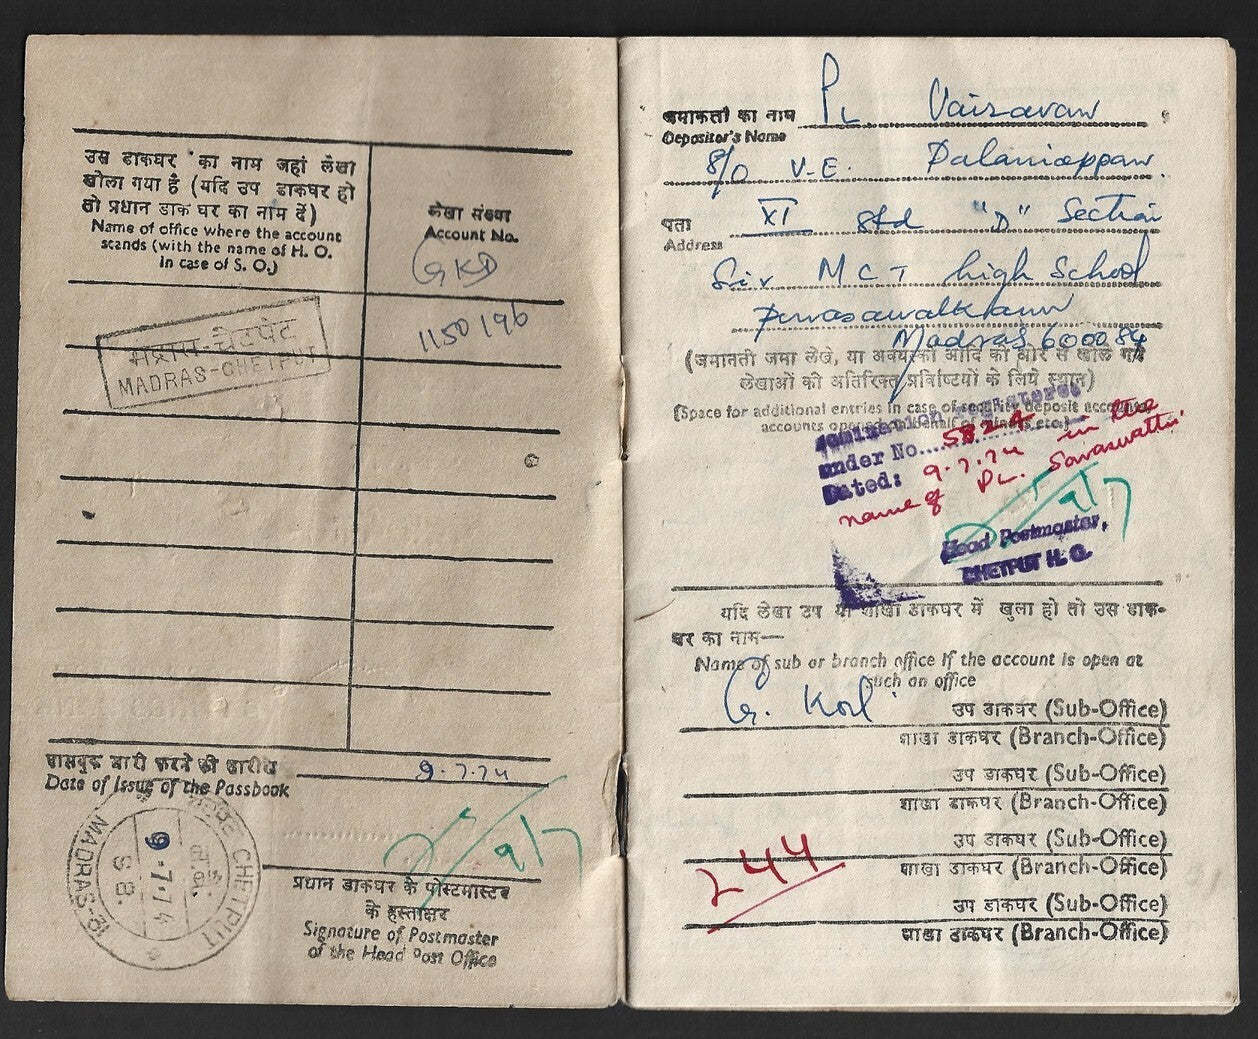 उस डाकघर का नाम जहां लेखा
खोला गया है (यदि उप डाकघर हो
तो प्रधान डाक घर का नाम दें)
Name of office where the account
scands (with the name of H. O.
in case of S. O.)
लेखा संख्या
Account No.
GKD
1150196
मद्रास-चेटपेट
MADRAS-CHETPUT
पासबुक जारी करने की तारीख
Date of Issue of the Passbook
9.7.74
CHETPUT
MADRAS-31
9.7.74
S B.
9/7
प्रधान डाकघर के पोस्टमास्टर
के हस्ताक्षर
Signature of Postmaster
of the Head Post Office
जमाकर्ता का नाम
Depositor's Name
PL Vairavan
S/O V.E. Palaniappan
पता
Address
XI Std "D" Section
Sir M C T high School
Purasawalkam
Madras 600084
(जमानती जमा लेखे, या अवयस्कों आदि की ओर से खोले गये
लेखाओं की अतिरिक्त प्रविष्टियों के लिये स्थान)
(Space for additional entries in case of security deposit accounts,
accounts opened on behalf of minors etc.)
Nomination Registered
under No. 5824
Dated: 9.7.74 in the
name of PL. Saraswathi
9/7
Head Postmaster,
CHETPUT H. O.
यदि लेखा उप या शाखा डाकघर में खुला हो तो उस डाक-
घर का नाम—
Name of sub or branch office if the account is open at
such an office
उप डाकघर (Sub-Office)
शाखा डाकघर (Branch-Office)
उप डाकघर (Sub-Office)
शाखा डाकघर (Branch-Office)
उप डाकघर (Sub-Office)
244
शाखा डाकघर (Branch-Office)
उप डाकघर (Sub-Office)
शाखा डाकघर (Branch-Office)